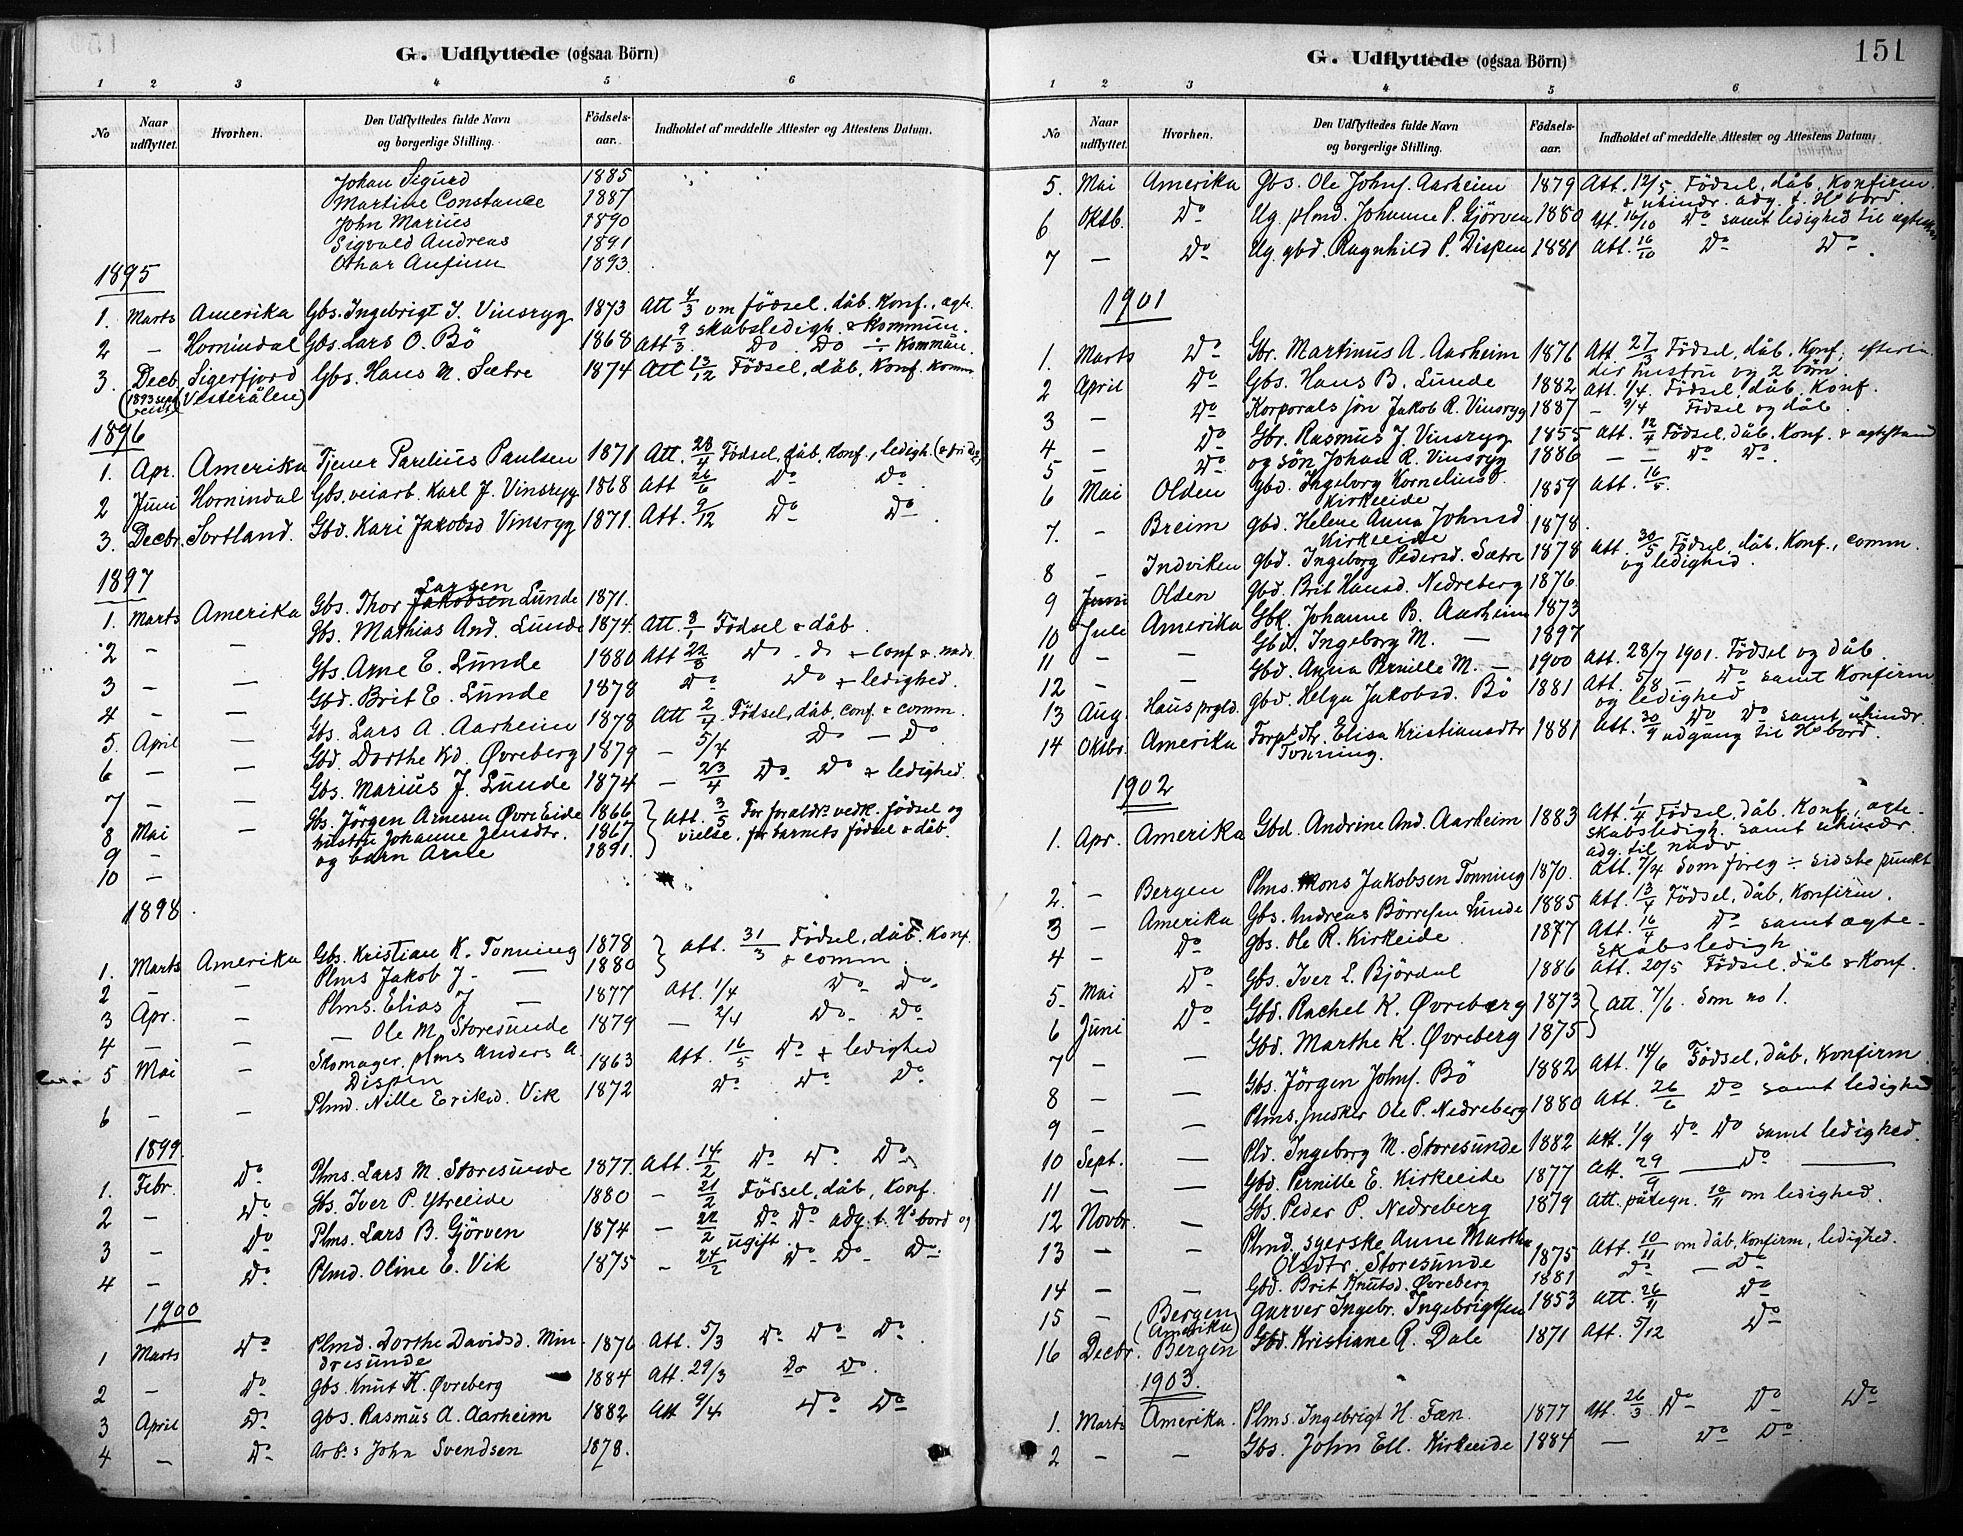 G. Udflyttede (ogsaa Börn)
1 2 3 4 5 6
No Naar udflyttet. Hvorhen. Den Udflyttedes fulde Navn og borgerlige Stilling. Fødselsaar. Indholdet af meddelte Attester og Attestens Datum.
Johan Sigurd 1885
Martine Constance 1887
John Marius 1890
Sigvald Andreas 1891
Othar Anfinn 1893
1895
1. Marts Amerika Gbs. Ingebrigt J. Vinsryg 1873 Att 4/3 om födsel, dåb, Konf., ægte-
skabsledigh. & Kommun.
2 — Hornindal Gbs. Lars O. Bö 1868 Att 9/3 Do Do ÷ Kommun.
3. Decb. Sigerfjord Gbs. Hans M. Sætre 1874 Att 13/12 Födsel, dåb, Konf. Komm
(1893 sept. reist) Vesterålen)
1896
1. Apr. Amerika Tjener Parelius Paulsen 1871 Att. 28/4 Födsel, dåb, Konf., ledigh.
2 Juni Hornindal Gbs. veiarb. Karl J. Vinsryg 1868 Att 26/6 Do Do
3. Decbr. Sortland. Gbd. Kari Jakobsd Vinsryg 1871. Att. 9/12 Do Do
1897
Larsen
1. Marts Amerika Gbs. Thor Jakobsen Lunde 1871.
2 — — Gbs. Mathias And. Lunde 1874. Att. 8/1 Födsel & dåb
3 — — Gbs. Arne E. Lunde 1880 Att 22/3 Do Do & Conf & nadv.
4 — — Gbd. Brit E. Lunde 1878 Do Do & ledighed.
5. April — Gbs. Lars A. Aarheim 1878 Att 2/4 Födsel, dåb, conf. & comm.
6 — — Gbd. Dorthe Kd. Øvreberg 1879 — 5/4 Do — Do
7 — — Gbs. Marius J. Lunde 1874 — 23/4 Do Do & ledighed.
8 Mai — Gbs. Jörgen Arnesen Øvre Eide 1866 Att. 3/5 For foraldr. vedk. födsel og
9 — hustru Johanne Jensdtr. 1867 vielse, for barnets födsel & dåb.
10 — og barn Arne 1891.
1898.
1. Marts Amerika Gbs. Kristian K. Tonning 1878 Att. 31/3 Födsel, dåb, Konf.
2 — — Plms Jakob J. — 1880 & comm.
3 Apr. — Plms. Elias J — 1877 Att. 1/4 Do Do
4 — — — Ole M. Storesunde 1879 — 2/4 Do Do
5 Mai — Skomager. plms Anders A. 1863 Att. 16/5 Do & ledighed
Dispen
6 — — Plmd. Nille Eriksd. Vik 1872 Do Do Do
1899.
1. Febr. Do Plms. Lars M. Storesunde 1877. Att. 14/2 Do Do Do
2 — Do Gbs. Iver P. Ytreeide 1880 — 21/2 Födsel, dåb, Konf.
3 — Do Plms. Lars B. Gjörven 1874 — 22/2 Do Do adg. t. Hs bord og
ugift
4 — Do Plmd. Oline E. Vik 1875 — 24/2 Do Do Do
1900
1 Marts Do Plmd. Dorthe Davidsd. Min- 1876 Att. 5/3 Do Do Do
dresunde
2 — Do Gbs. Knut K. Øvreberg 1884 Att. 29/3 Do Do
3 April Do Gbs. Rasmus A. Aarheim 1882 Att 9/4 Do Do
4 — Do Arbs: John Svendsen 1878.
G. Udflyttede (ogsaa Börn)
151
1 2 3 4 5 6
No Naar udflyttet. Hvorhen. Den Udflyttedes fulde Navn og borgerlige Stilling. Fødselsaar. Indholdet af meddelte Attester og Attestens Datum.
5. Mai Amerika Gbs. Ole Johns. Aarheim 1879 Att. 12/5 Födsel, dåb, Konfirm.
& uhindr. adg. t. Hs bord.
6 Oktb. Do Ug. plmd. Johanne P. Gjörven 1880 Att. 16/10 Do samt ledighed til
7 — Do Ug. gbd. Ragnhild P. Dispen 1881 Att. 16/10 Do Do
1901
1. Marts Do Gbr. Martinus A. Aarheim 1876 Att. 27/3 Födsel, dåb, Konf, efterla-
der hustru og 2 börn.
2 April Do Gbs. Hans B. Lunde 1882 Att. 1/4. Födsel, dåb, Konf.
3 — Do Korporals sön Jakob R. Vinsryg 1887 — 9/4 Födsel og dåb
4 — Do Gbr. Rasmus J. Vinsryg 1855 Att. 12/4 Födsel, dåb, Konf. & ægtestand
5 — Do og sön Johan R. Vinsryg 1886 — — Do Do.
6 Mai Olden Gbd. Ingeborg Kornelius 1859 Att. 16/5.
Kirkeeide
7. — Breim gbd. Helene Anna Johnsd 1878.
Kirkeeide
8 — Indviken gbd. Ingeborg Pedersd. Sætre 1878 Att. 30/5 Födsel, dåb, Konf., comm.
og ledighed.
9 Juni Olden Gbd. Brit Hansd. Nedreberg 1876
10 Juli Amerika Gbk. Johanne B. Aarheim 1873
11 — — Gbd. Ingeborg M. — 1897
12 — — Gbd. Anna Pernille M. — 1900 Att. 28/7 1901. Födsel og dåb
13 Aug. Haus prgld. gbd. Helga Jakobsd. Bö 1881 Att. 5/8 — Do samt Konfirm.
og ledighed
14 Oktbr. Amerika Forp. dtr. Elisa Kristiansdtr 1881 Att. 30/9 Do Do samt uhindr.
Tonning. adgang til Hs bord.
1902
1. Apr. Amerika Gbd. Andrine And. Aarheim 1883 Att. 1/4 Födsel, dåb, Konf., ægte-
skabsledigh. samt uhindr.
adg. til nadv
2. — Bergen Plms. Mons Jakobsen Tonning 1870. Att. 7/4 Som foreg ÷ sidste punkt
3 — Amerika Gbs. Andreas Börresen Lunde 1885 Att. 13/4 Födsel, dåb, Konfirm.
4 — Do gbs. Ole R. Kirkeide 1877 Att. 16/4 Do samt ægte-
skabsledigh
5. Mai Do Gbs. Iver L. Björdal 1886 Att. 20/5 Födsel, dåb & Konf.
6 Juni Do Gbd. Rachel K. Øvreberg 1873 Att. 7/6. Som no 1.
7 — — Gbd. Marthe K. Øvreberg 1875
8 — — Gbs. Jörgen Johns. Bö 1882 Att. 14/6 Födsel, dåb, Konfirm
9 — — Plms. snedker Ole P. Nedreberg 1880 Att. 26/6 Do samt ledighed
10 Sept. — Pld. Ingeborg M. Storesunde 1882 Att. 1/9 Do Do samt ledighed.
11 — — Gbd. Pernille E. Kirkeeide 1877 Att. 29/9 — Do —
12 Novbr. — Gbs. Peder P. Nedreberg 1879 Att. påtegn. 10/11 om ledighed.
13 — — Plmd. syerske Anne Marthe
Olsdtr. Storesunde 1875 Att. 10/11 om dåb, Konfirm, ledighed.
14 — — Gbd. Brit Knutsd. Øvreberg 1881 Do — Do
15 — Bergen Garver Ingebr. Ingebrigtsen 1853 Att. 26/11 Do
(Amerika)
16 Decbr. Bergen Gbd. Kristiane R. Dale 1871 Att. 5/12 Do
1903.
1. Marts Amerika. Plms. Ingebrigt H. Fæn 1877 Att. 26/3 Do Do Do
2 — — Gbs. John Ell. Kirkeeide 1884 — Do Do.